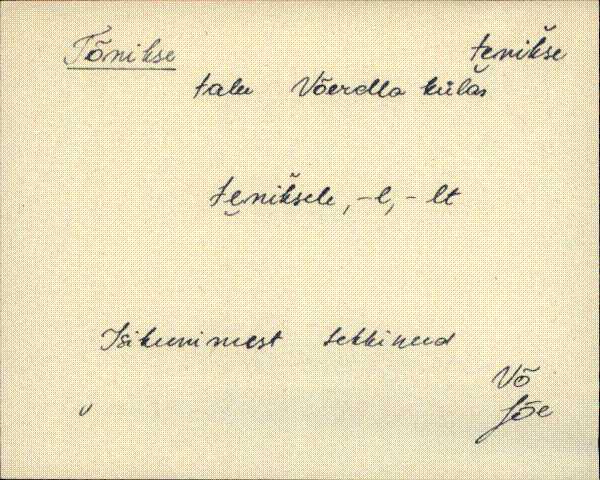 Tõnikse tẹnikše
talu Võerdla külas
tẹnikšele, -l, -lt
Isikunimest tekkinud
Võ
Jõe